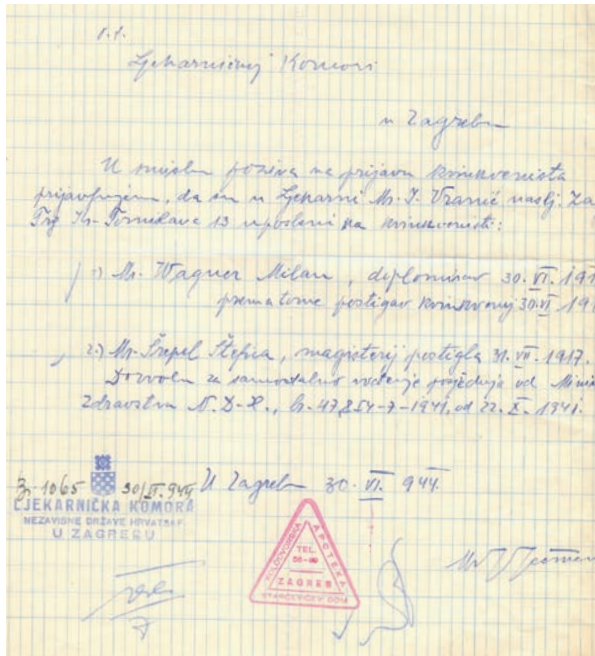 Ljekarničkoj Komori
u Zagrebu
U smislu poziva na prijavu kvinkvenista
prijavljujem, da su u Ljekarni Mr. J. Vranić naslj. Za
Trg Kr. Tomislava 13 uposleni kvinkvenisti:
1) Mr. Wagner Milan, diplomirao 30. VI. 191
prema tome postigao kvinkvenij 30. VI. 19
2.) Mr. Šrepel Štefica, magisterij postigla 31. VII. 1917.
Dozvolu za samostalno vođenje posjeduje od Minis
Zdravstva N.D.H., br. 47854-7-1941, od 22. X. 1941.
U Zagrebu 30. VI. 944.
3-1065 30/VI.944
LJEKARNIČKA KOMORA
NEZAVISNE DRŽAVE HRVATSKE
U ZAGREBU
KOLODVORSKA
APOTEKA
TEL.
ZAGREB
STARČEVIĆEV DOM